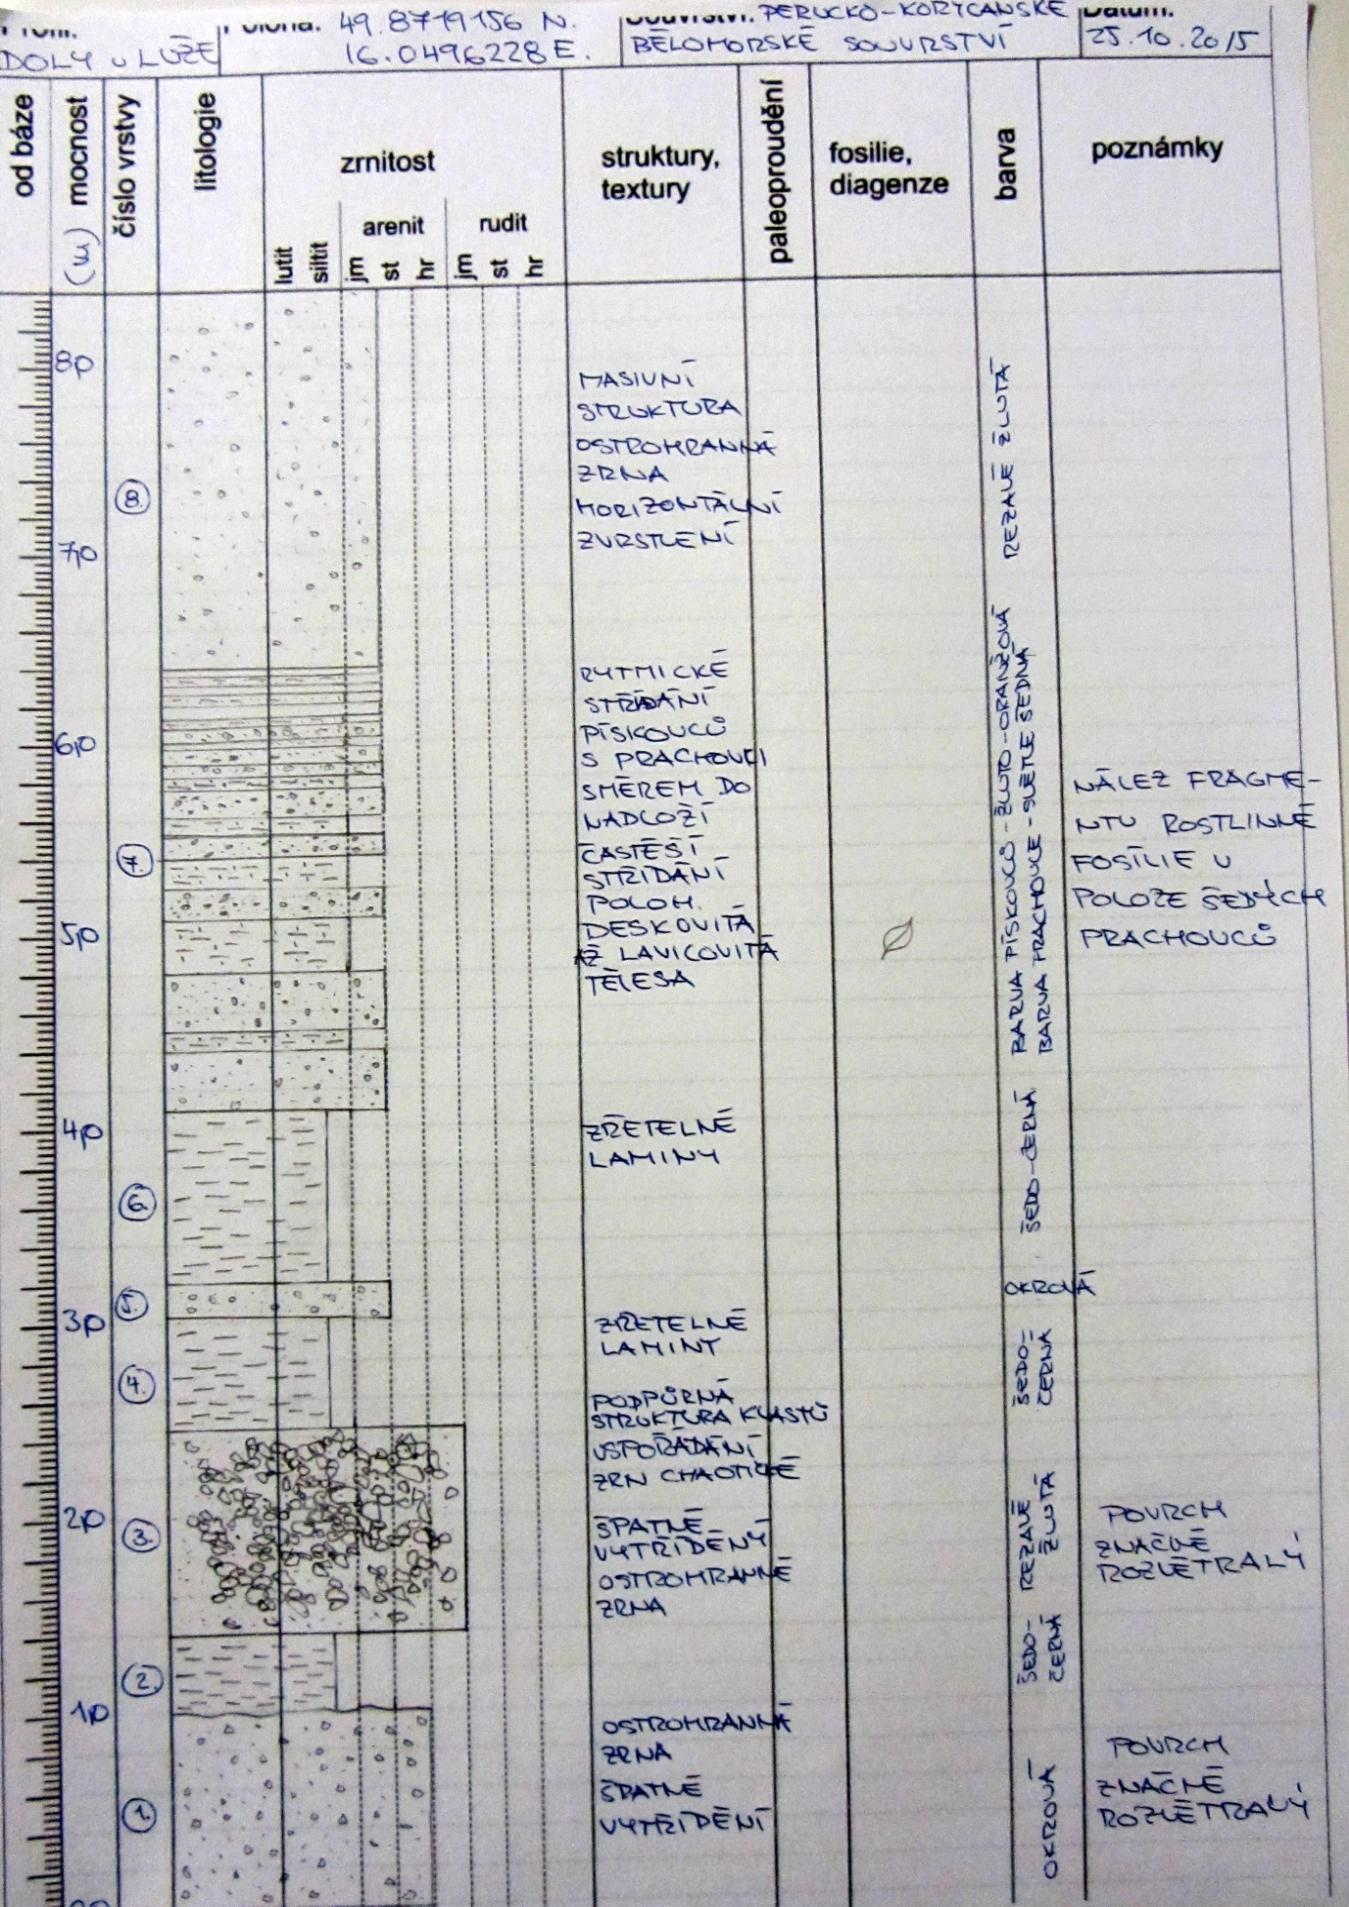 Poloha: 49.8719156 N.
16.0496228 E.
DOLY U LUŽE
Souvrství: PERUCKO-KORYCANSKÉ
BĚLOHORSKÉ SOUVRSTVÍ
Datum:
25.10.2015
od báze
mocnost (m)
číslo vrstvy
litologie
zrnitost
lutit
siltit
arenit
jm
st
hr
rudit
jm
st
hr
struktury,
textury
paleoproudění
fosilie,
diagenze
barva
poznámky
8,0
8.
MASIVNÍ
STRUKTURA
OSTROHRANNÁ
ZRNA
HORIZONTÁLNÍ
ZVRSTLENÍ
REZALĚ ŽLUTÁ
7,0
RYTMICKÉ
STŘÍDÁNÍ
PÍSKOVCŮ
S PRACHOVCI
SMĚREM DO
NADLOŽÍ
ČASTĚŠÍ
STŘÍDÁNÍ
POLOH.
DESKOVITÁ
AŽ LAVICOVITÁ
TĚLESA
BARVA PÍSKOVCŮ - ŽLUTO-ORANŽOVÁ
BARVA PRACHOVCE - SVĚTLE ŠEDNÁ
NÁLEZ FRAGME-
NTU ROSTLINNÉ
FOSÍLIE V
POLOZE ŠEDÝCH
PRACHOVCŮ
6,0
7.
5,0
4,0
ZŘETELNÉ
LAMINY
ŠEDO-ČERNÁ
6.
5.
OKROVÁ
3,0
ZŘETELNÉ
LAMINY
4.
ŠEDO-
ČERNÁ
PODPŮRNÁ
STRUKTURA KLASTŮ
USPOŘÁDÁNÍ
ZRN CHAOTICKÉ
ŠPATNĚ
VYTŘÍDĚNÝ
OSTROHRANNÉ
ZRNA
REZALĚ
ŽLUTÁ
POVRCH
ZNAČNĚ
ROZVĚTRALÝ
2,0
3.
ŠEDO-
ČERNÁ
2.
1,0
OSTROHRANNÁ
ZRNA
ŠPATNÉ
VYTŘÍDĚNÍ
OKROVÁ
POVRCH
ZNAČNĚ
ROZVĚTRALÝ
1.